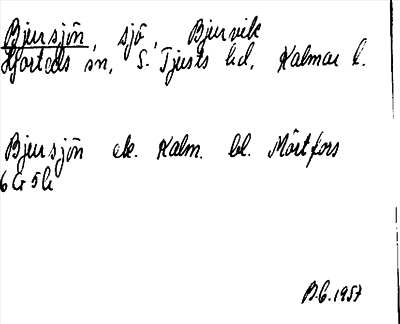 Bjursjön, sjö, Bjurvik
Hjorteds sn, S. Tjusts hd, Kalmar l.
Bjursjön ek. Kalm. bl. Mörtfors
6G5b
B.G. 1957